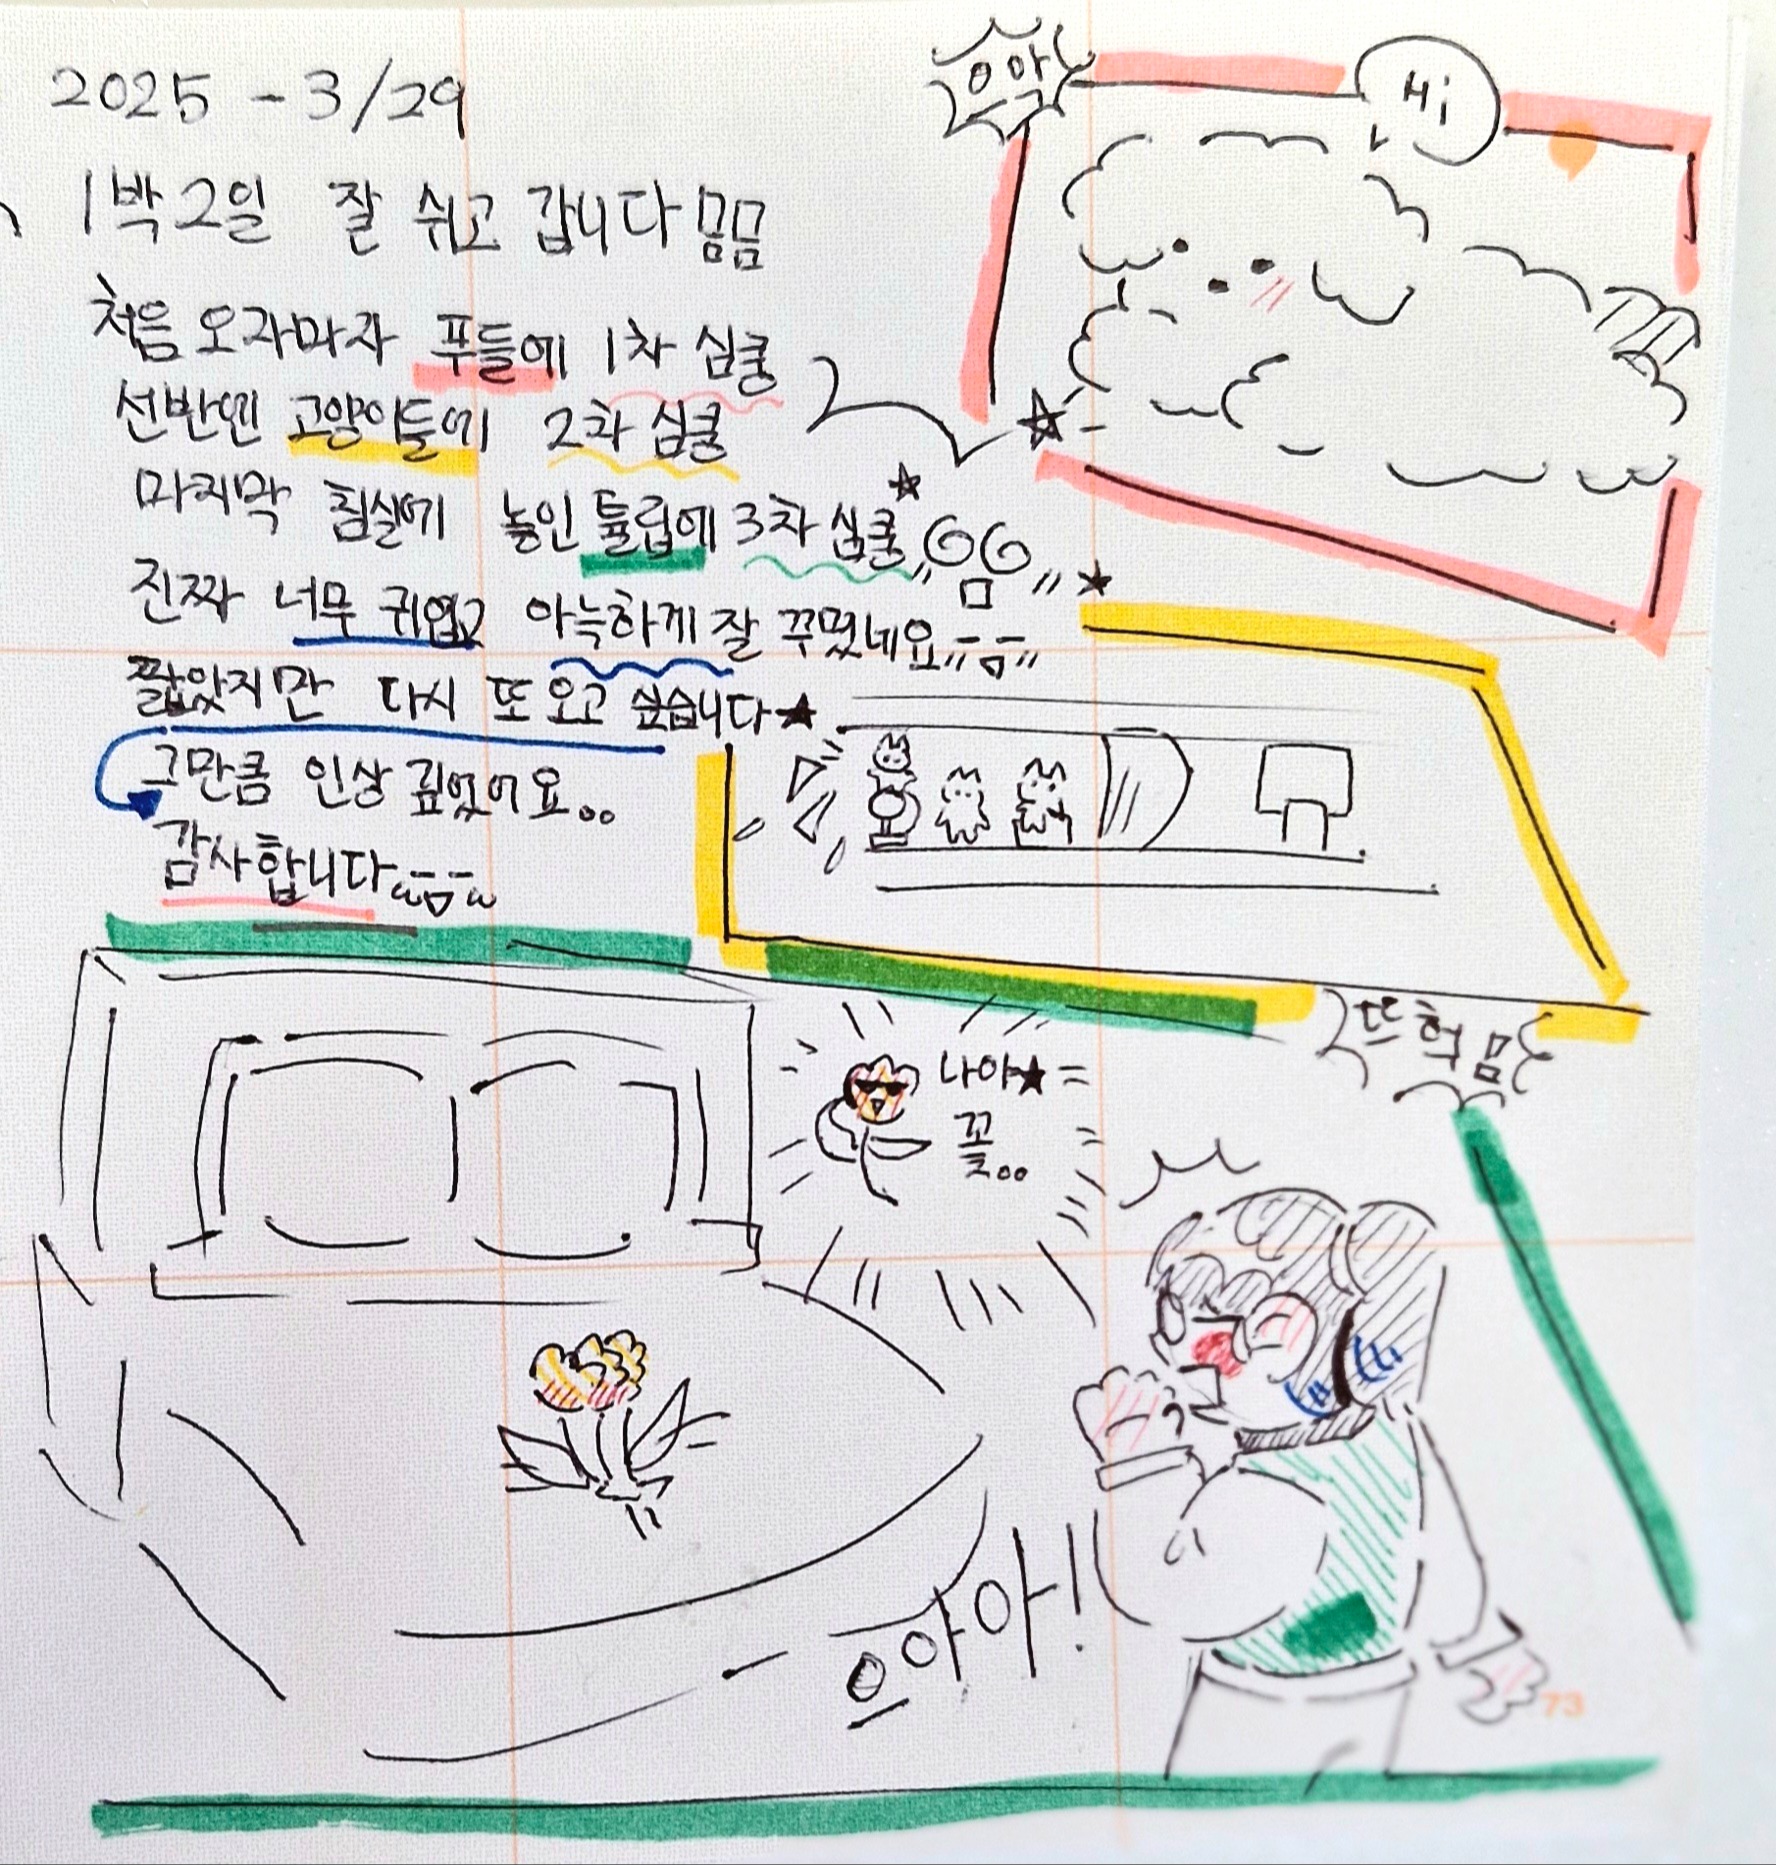 2025 - 3/29
1박2일 잘 쉬고 갑니다 몸뭄
처음 오자마자 푸들에 1차 심쿵
선반엔 고양이들에 2차 심쿵
마지막 침실에 놓인 튤립에 3차 심쿵
진짜 너무 귀엽고 아늑하게 잘 꾸몄네요
짧았지만 다시 또 오고 싶습니다★
그만큼 인상 깊었어요..
감사합니다
으악
Hi
뜨헉 몸
나야★
꼴..
으아아!
73